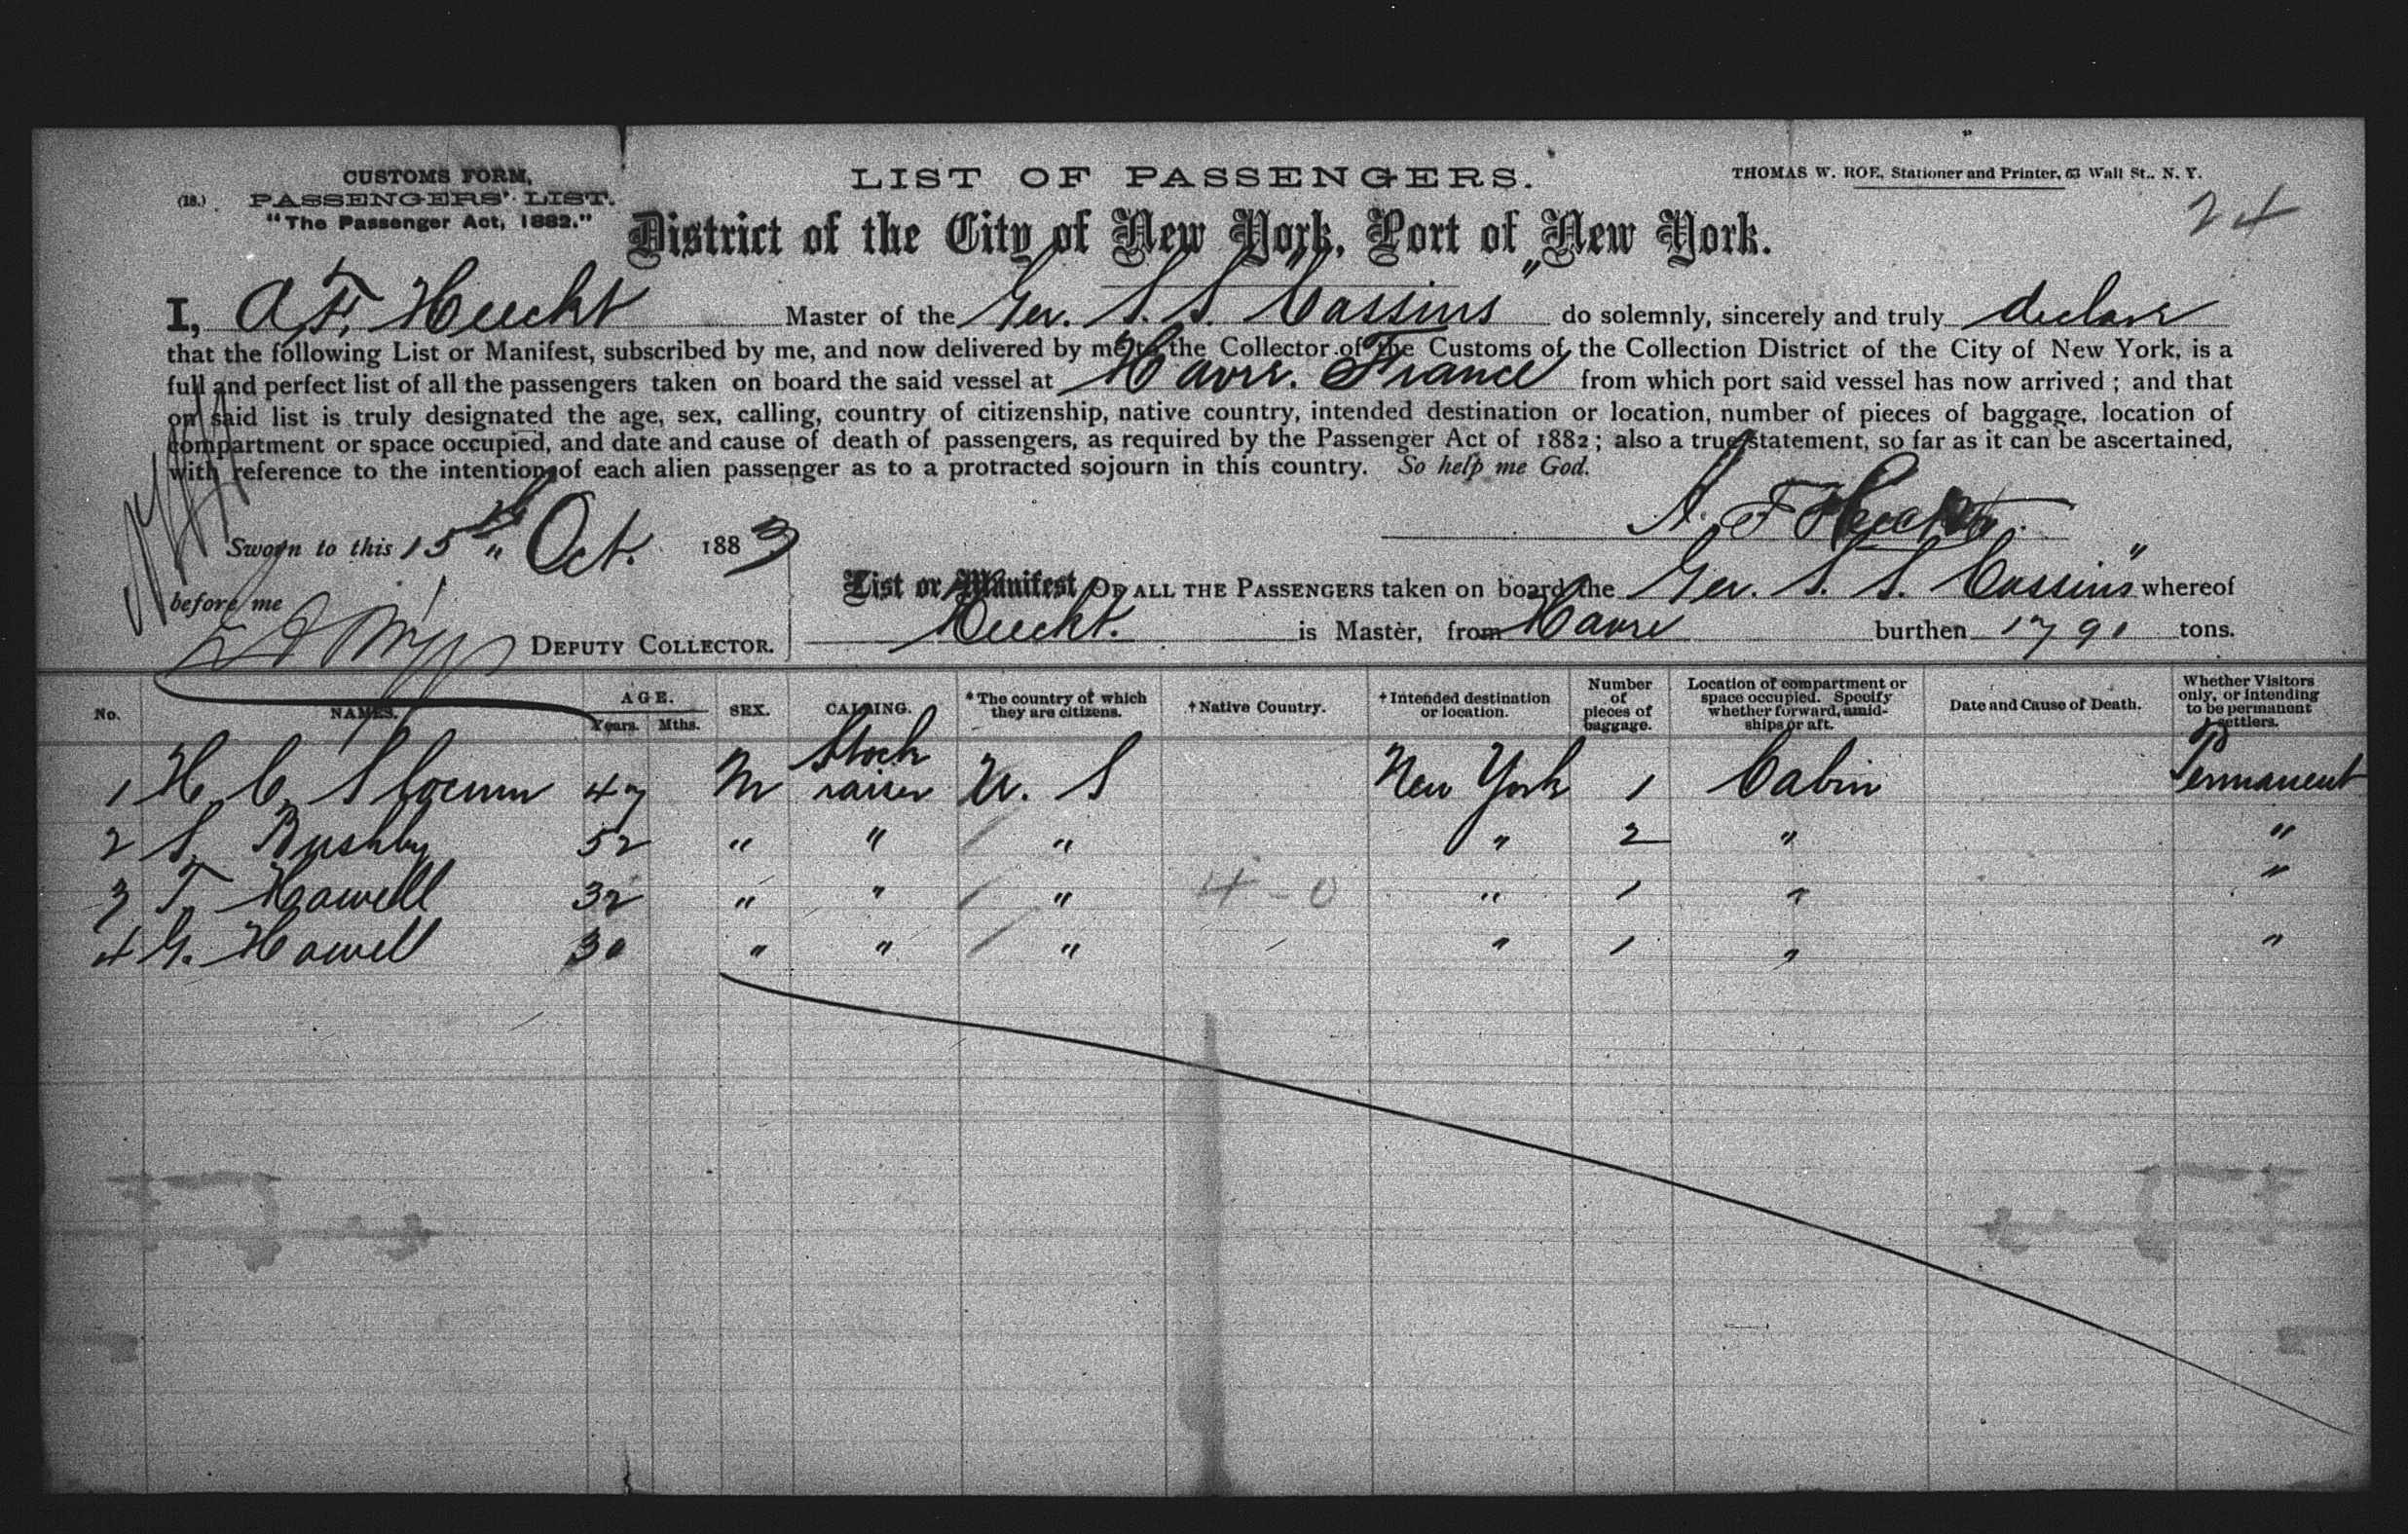 CUSTOMS FORM,
(18.) PASSENGERS' LIST.
"The Passenger Act, 1882."
LIST OF PASSENGERS.
THOMAS W. ROE, Stationer and Printer, 63 Wall St., N. Y.
24
District of the City of New York, Port of New York.
I, A. F. Heecht Master of the Ger. S. S. Cassius" do solemnly, sincerely and truly declare
that the following List or Manifest, subscribed by me, and now delivered by me to the Collector of the Customs of the Collection District of the City of New York, is a
full and perfect list of all the passengers taken on board the said vessel at Havre. France from which port said vessel has now arrived ; and that
on said list is truly designated the age, sex, calling, country of citizenship, native country, intended destination or location, number of pieces of baggage, location of
compartment or space occupied, and date and cause of death of passengers, as required by the Passenger Act of 1882 ; also a true statement, so far as it can be ascertained,
with reference to the intention of each alien passenger as to a protracted sojourn in this country. So help me God.
Sworn to this 15th Oct. 1883
before me
DEPUTY COLLECTOR.
List or Manifest OF ALL THE PASSENGERS taken on board the Ger. S. S. Cassius" whereof
Heecht. is Master, from Havre burthen 1791 tons.
No. NAMES. AGE. Years. Mths. SEX. CALLING. *The country of which they are citizens. †Native Country. †Intended destination or location. Number of pieces of baggage. Location of compartment or space occupied. Specify whether forward, amidships or aft. Date and Cause of Death. Whether Visitors only, or intending to be permanent settlers.
1 H. C. Slocum 47 M Stock raiser U. S New York 1 Cabin Permanent
2 S. Bushby 52 " " " " 2 " "
3 T. Howell 32 " " " 4-0 " 1 " "
4 G. Howell 30 " " " " 1 " "